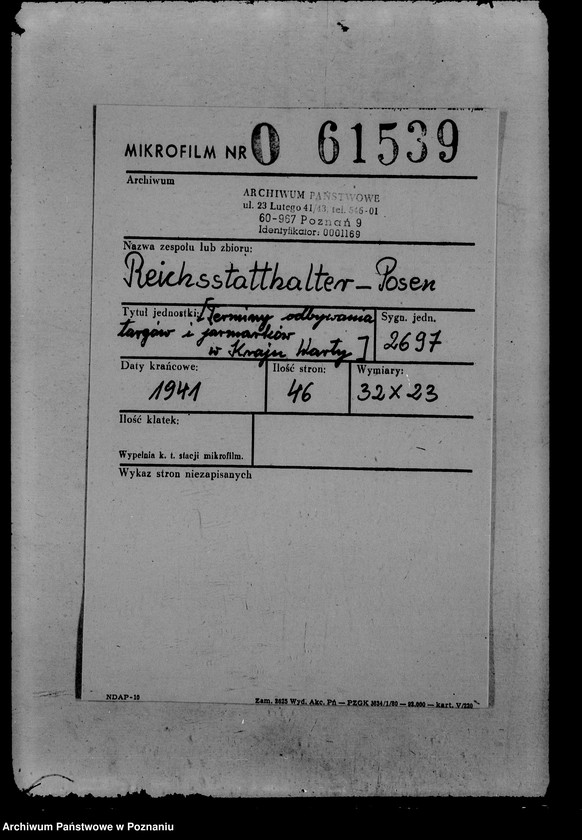 MIKROFILM NR 0 61539
Archiwum
ARCHIWUM PAŃSTWOWE
ul. 23 Lutego 41/43, tel. 546-01
60-967 Poznań 9
Identyfikator: 0001169
Nazwa zespołu lub zbioru:
Reichsstatthalter – Posen
Tytuł jednostki: [Terminy odbywania
targów i jarmarków
w Kraju Warty]
Sygn. jedn.
2697
Daty krańcowe:
1941
Ilość stron:
46
Wymiary:
32 x 23
Ilość klatek:
Wypełnia k. t. stacji mikrofilm.
Wykaz stron niezapisanych
NDAP-10
Zam. Wyd. Akc. Pń — PZGK — kart. V/220
Archiwum Państwowe w Poznaniu